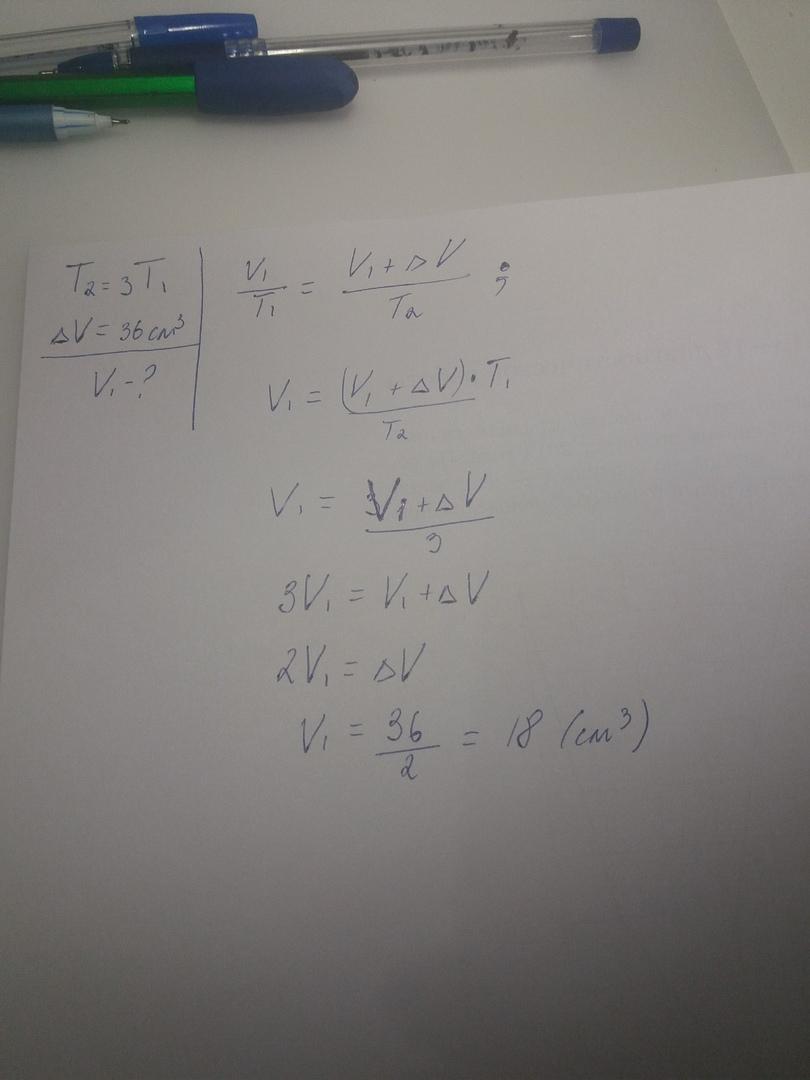 T₂ = 3T₁
ΔV = 36 см³
V₁ - ?
V₁/T₁ = (V₁ + ΔV)/T₂ ;
V₁ = (V₁ + ΔV) · T₁ / T₂
V₁ = (V₁ + ΔV)/3
3V₁ = V₁ + ΔV
2V₁ = ΔV
V₁ = 36/2 = 18 (см³)